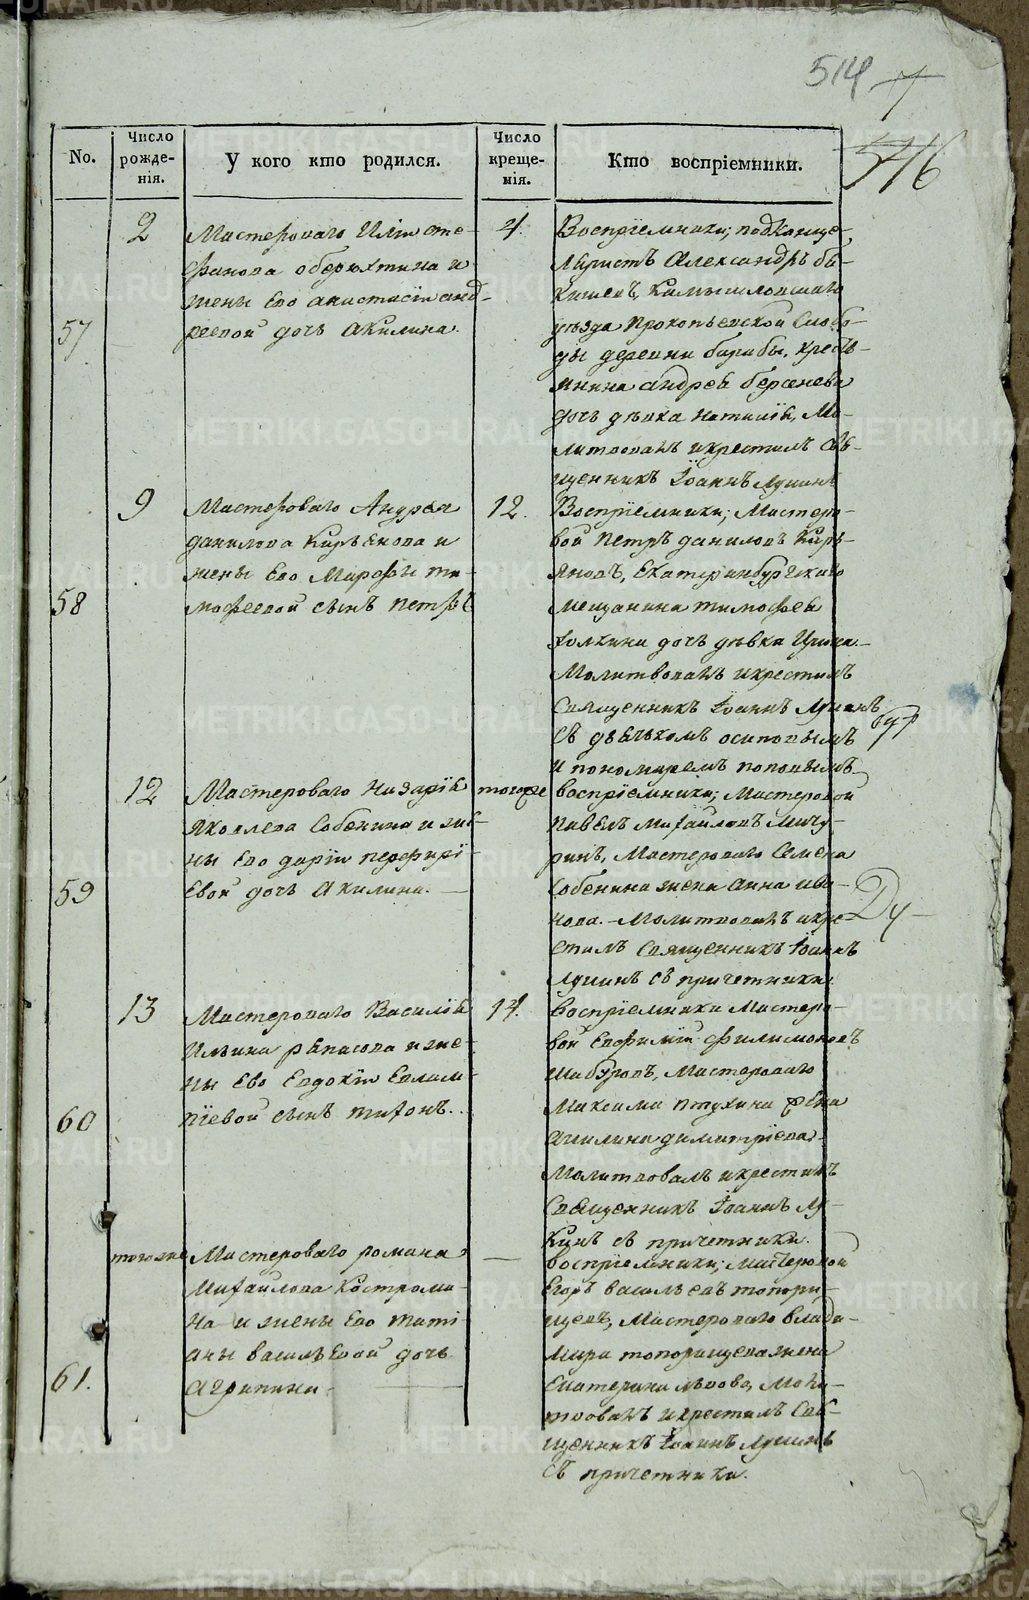 514
516
No.
Число рожде-нія.
У кого кто родился.
Число креще-нія.
Кто воспріемники.
57
2
Мастероваго Иліи Сте-
фанова оберюхтина и
жены Его анастасіи анд-
реевой дочь акилина.
4.
Воспріемники; подканце-
ляристъ Александръ
Камышловскаго
уѣзда Прокопьевской Слобо-
ды деревни барабы, кресть-
янина андрея берсенева
дочь дѣвка наталія, Мо-
литвовалъ и крестилъ Свя-
щенникъ Іоаннъ Лукинъ
58
9
Мастероваго Андрея
данилова Кирьянова и
жены Его Марфы ти-
мофеевой сынъ петръ
12.
Воспріемники; Мастеро-
вой петръ даниловъ Кирь-
яновъ, Екатеринбургскаго
мещанина тимофея
дочь дѣвка Ирина.
Молитвовалъ и крестилъ
Священникъ Іоаннъ Лукинъ
съ дьячкомъ осиповымъ
и пономаремъ поповымъ
59
12
Мастероваго Назарія
Яковлева Собенина и же-
ны Его даріи перфирі-
евой дочь Акилина.
тогоже
воспріемники; Мастеровой
павелъ михайловъ мичу-
ринъ, Мастероваго Семена
Собенина жена анна ива-
нова. Молитвовалъ и кре-
стилъ Священникъ Іоаннъ
Лукинъ съ причетники.
60
13
Мастероваго Василія
Ильина рѣпасова и же-
ны Его Евдокіи Евлам-
піевой сынъ тихонъ.
14.
Воспріемники Мастеро-
вой Евфимій филимоновъ
шабуровъ, Мастероваго
Максима птухина жена
акилина димитріева.
Молитвовалъ и крестилъ
Священникъ Іоаннъ Лу-
кинъ съ причетники.
61.
тогоже
Мастероваго романа
Михайлова Костроми-
на и жены Его тати-
аны васильевой дочь
агрипина
воспріемники; мастеровой
Егоръ васильевъ топори-
щевъ, Мастероваго влади-
мира топорищева жена
Екатерина львова, моли-
твовалъ и крестилъ Свя-
щенникъ Іоаннъ Лукинъ
съ причетники.